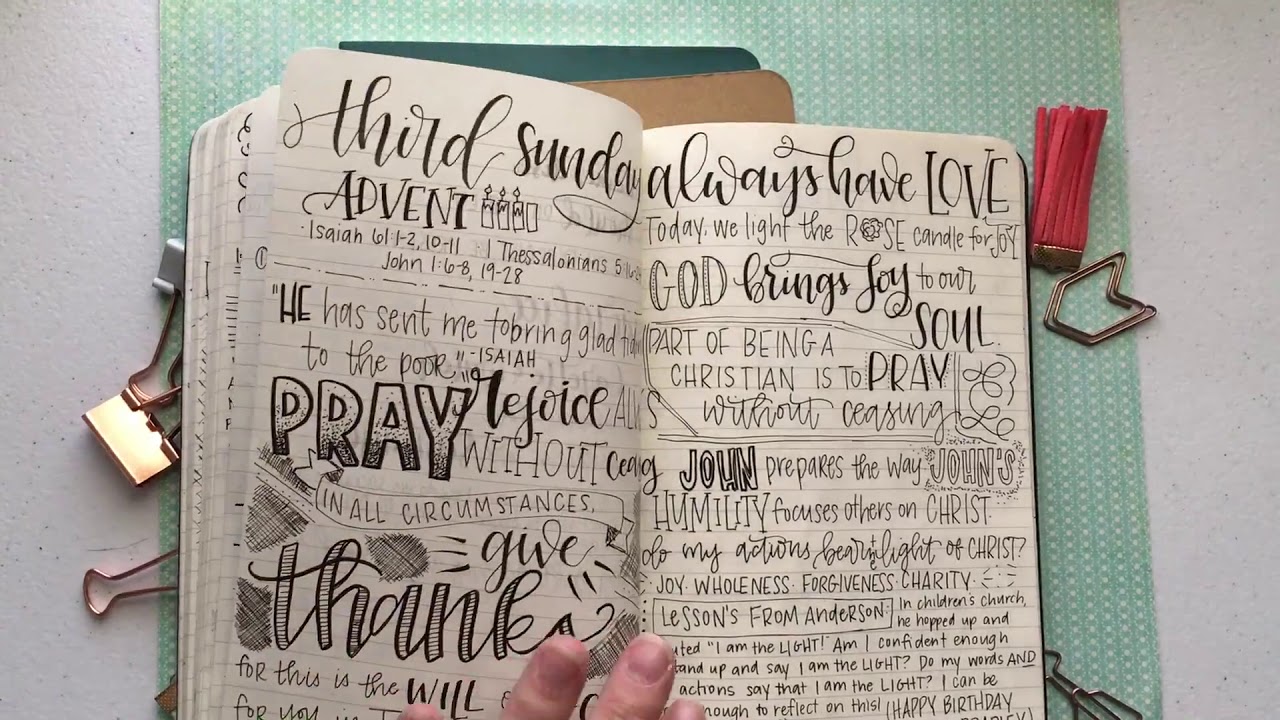 third sunday
ADVENT
Isaiah 61:1-2, 10-11 1 Thessalonians 5:16-
John 1:6-8, 19-28
"HE has sent me to bring glad
to the poor" -ISAIAH
PRAY "rejoice
WITHOUT
IN ALL CIRCUMSTANCES,
give
thanks
for this is the WILL
for you
always have LOVE
Today, we light the ROSE candle for JOY
GOD brings Joy to our
SOUL.
PART OF BEING A
CHRISTIAN IS TO PRAY
without ceasing
JOHN prepares the way JOHN'S
HUMILITY focuses others on CHRIST.
do my actions bear light of CHRIST?
JOY. WHOLENESS. FORGIVENESS. CHARITY.
LESSON'S FROM ANDERSON: In children's church,
he hopped up and
"I am the LIGHT!" Am I confident enough
up and say I am the LIGHT? Do my words AND
actions say that I am the LIGHT? I can be
enough to reflect on this! (HAPPY BIRTHDAY